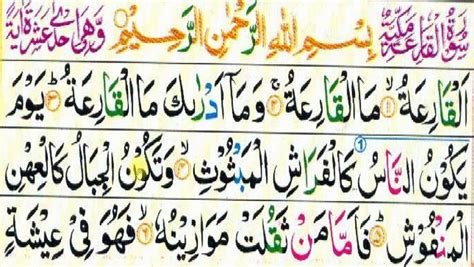 سُوْرَةُ الْقَارِعَةِ مَكِّيَّةٌ بِسْمِ اللهِ الرَّحْمٰنِ الرَّحِيْمِ وَهِيَ اِحْدٰى عَشْرَةَ اٰيَةً
اَلْقَارِعَةُ ۙ۱ مَا الْقَارِعَةُ ۚ۲ وَمَآ اَدْرٰىكَ مَا الْقَارِعَةُ ؕ۳ يَوْمَ
يَكُوْنُ النَّاسُ كَالْفَرَاشِ الْمَبْثُوْثِ ۙ۴ وَتَكُوْنُ الْجِبَالُ كَالْعِهْنِ
الْمَنْفُوْشِ ؕ۵ فَاَمَّا مَنْ ثَقُلَتْ مَوَازِيْنُهٗ ۙ۶ فَهُوَ فِيْ عِيْشَةٍ